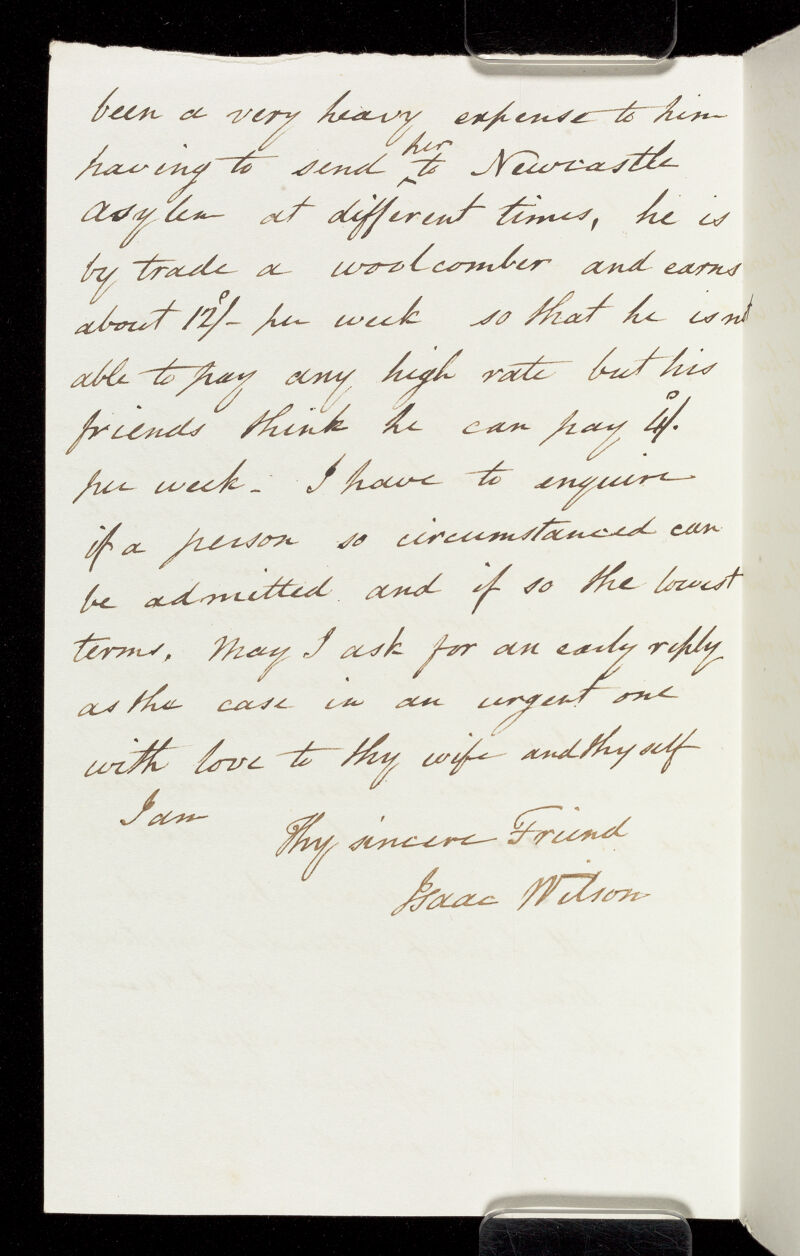 been a very heavy expense to him
having to send her to Newcastle
Asylem at different times, he is
by trade a woolcomber and earns
about 12s/- per week so that he is not
able to pay any high rate but his
friends think he can pay 4s/.
per week - I have to enquire
if a person so circumstanced can
be admitted and if so the lowest
terms. May I ask for an early reply
as the case in an urgent one
with love to thy wife and thyself
I am
Thy sincere Friend
Isaac Wilson